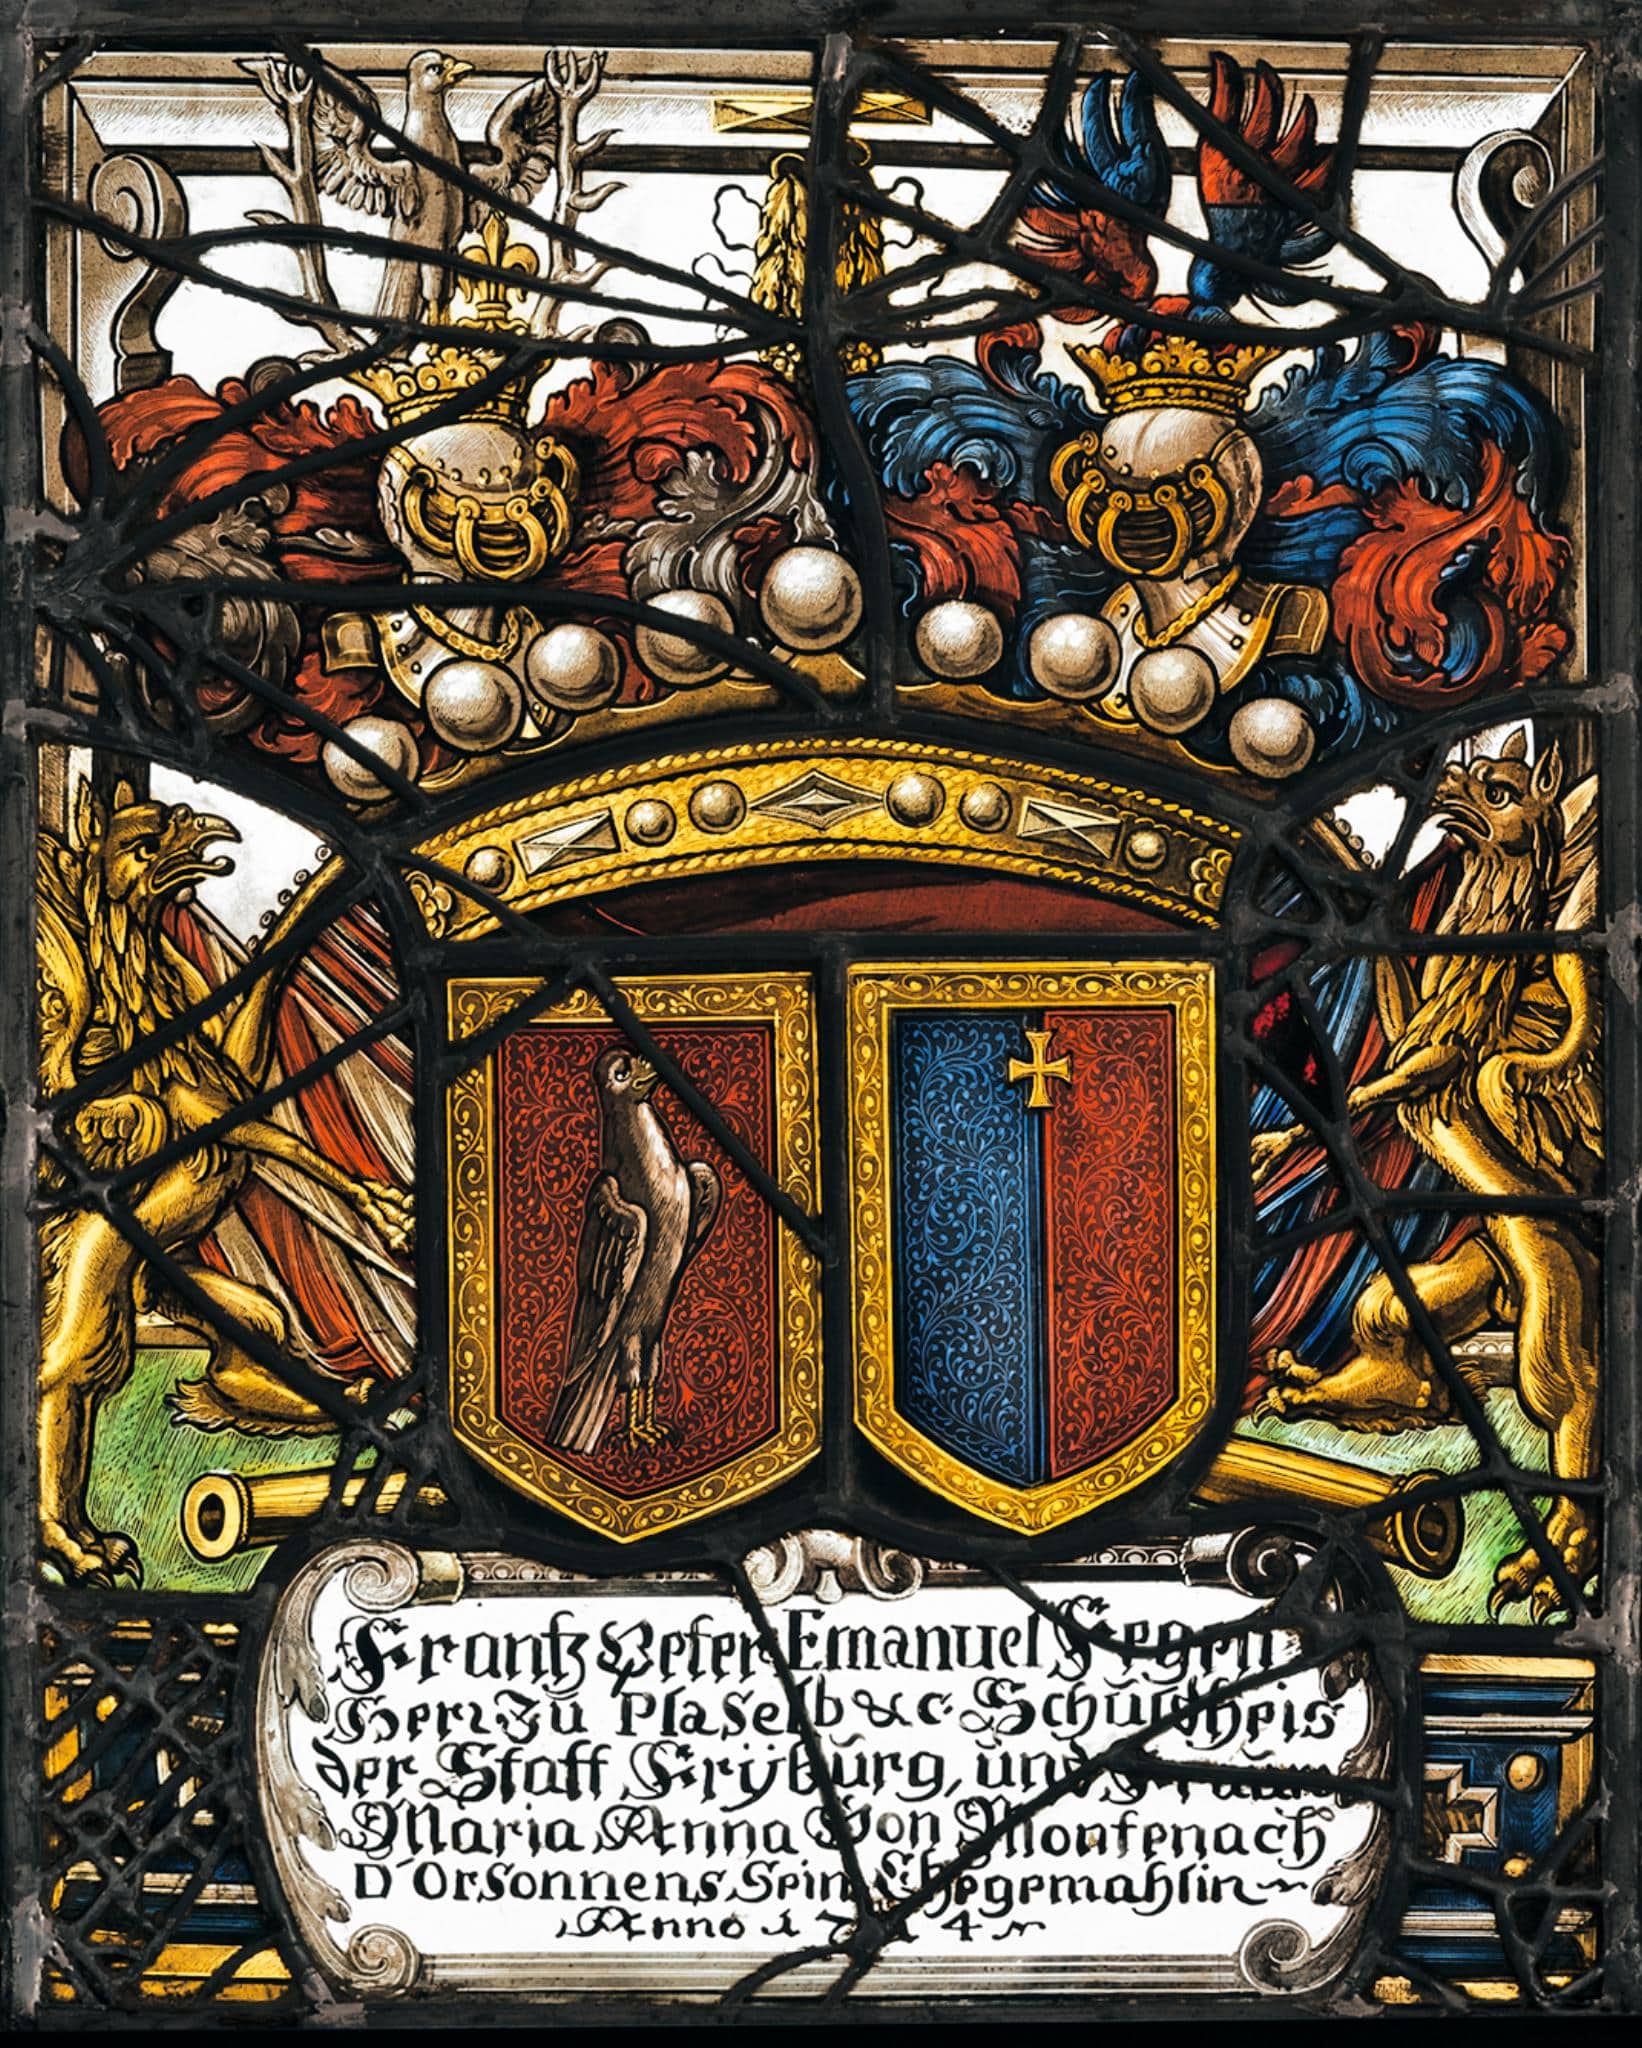 Frantz Peter Emanuel Fegeli
Herr Zů Plaselb &c. Schůltheis
der Statt Frÿbůrg, ůnd Fraůw
Maria Anna Von Montenach
D'Orsonnens Sein Ehegemahlin
Anno 1714